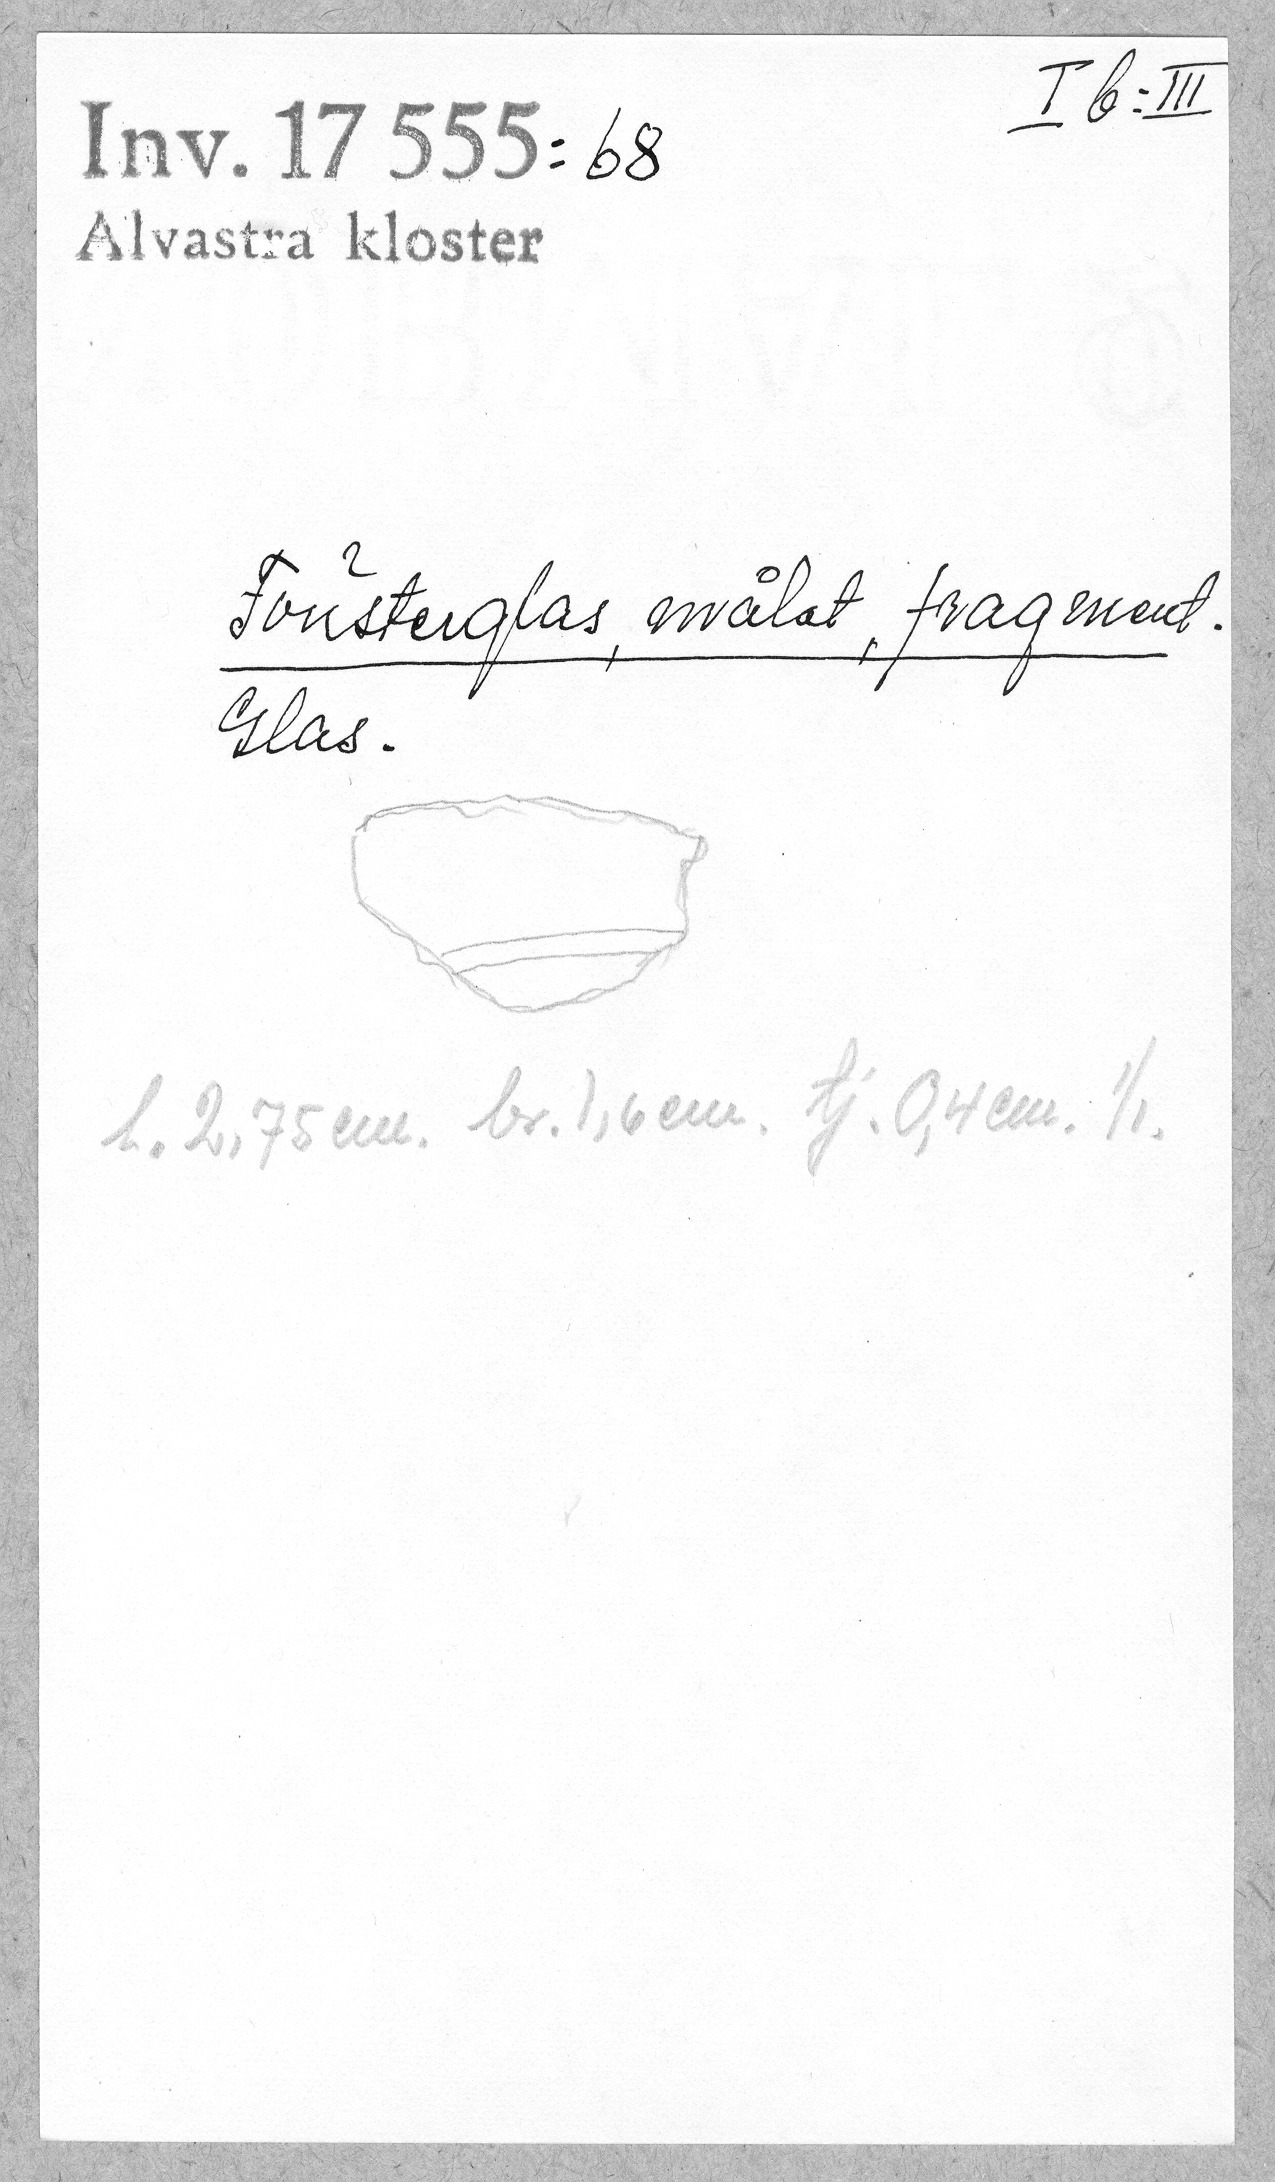 I b:III
Inv. 17 555:68
Alvastra kloster
Fönsterglas, målat, fragment.
Glas.
l. 2,75 cm. br. 1,6 cm. tj. 0,4 cm. 1/1.